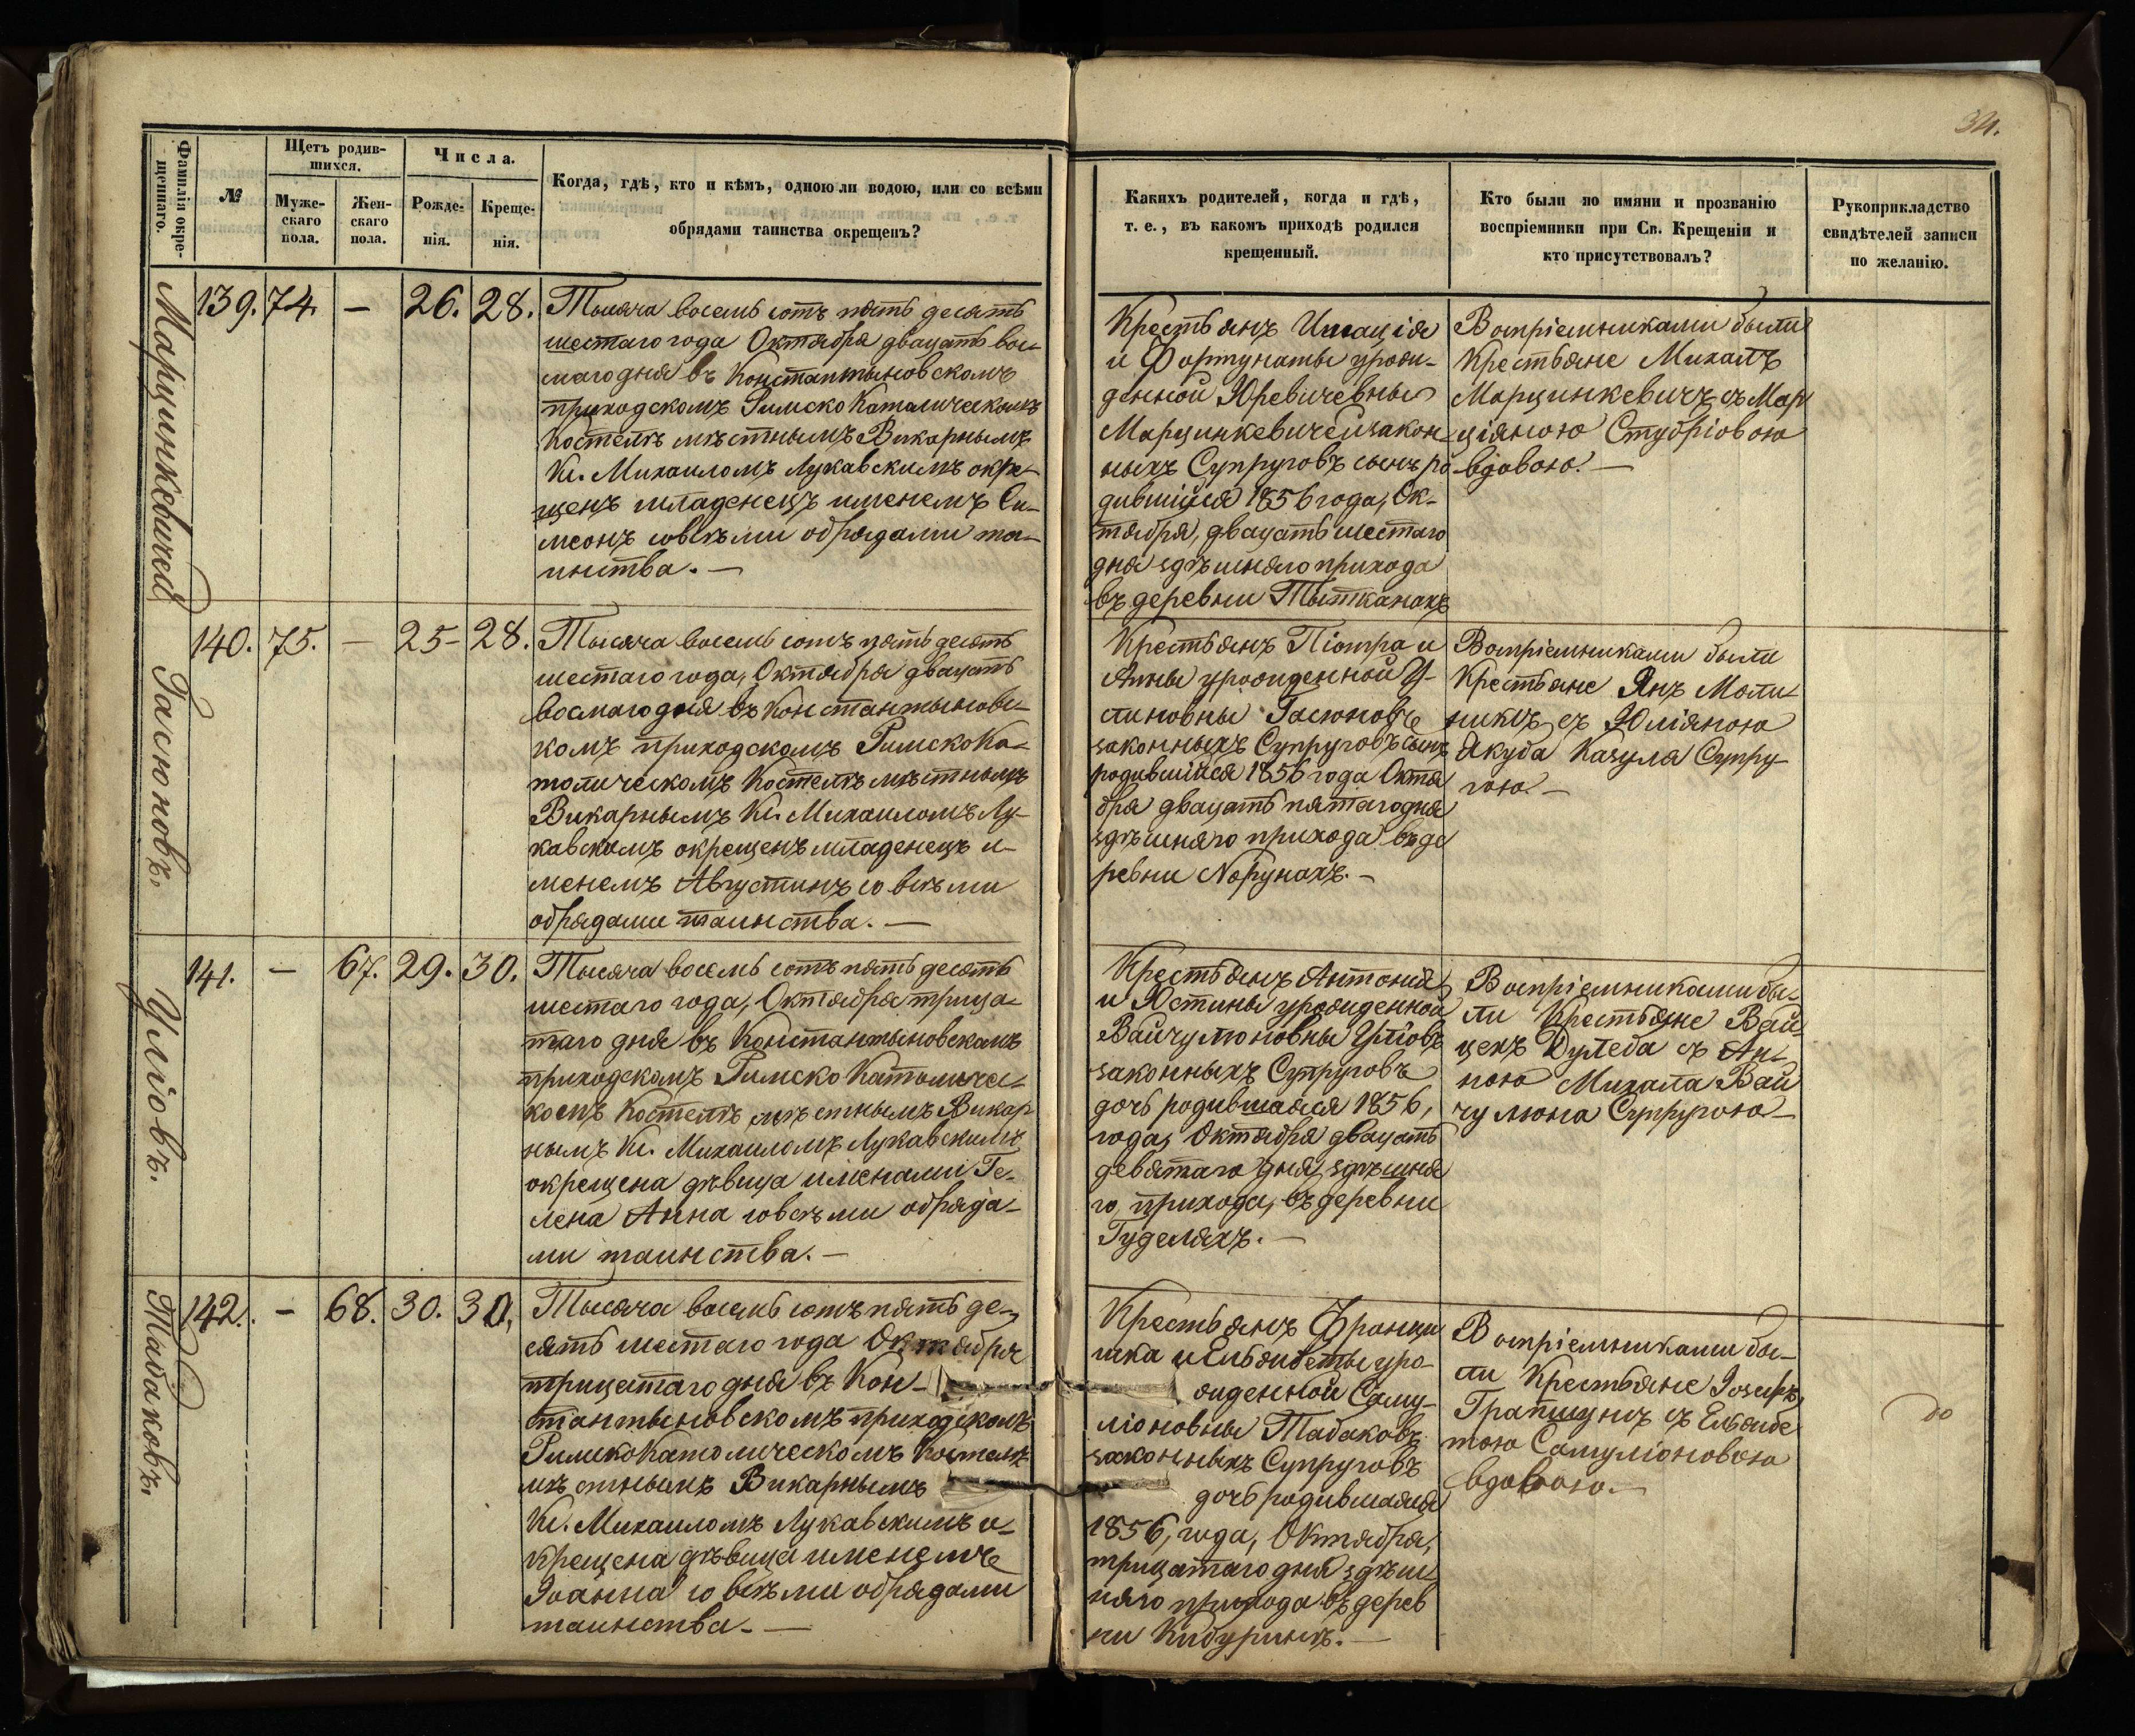 34.
Фамилія окре-
щеннаго.
№
Щетъ родив-
шихся.
Муже-
скаго
пола.
Жен-
скаго
пола.
Числа.
Рожде-
нія.
Креще-
нія.
Когда, гдѣ, кто и кѣмъ, одною ли водою, или со всѣми
обрядами таинства окрещенъ?
Какихъ родителей, когда и гдѣ,
т. е., въ какомъ приходѣ родился
крещенный.
Кто были по имяни и прозванію
воспріемники при Св. Крещеніи и
кто присутствовалъ?
Рукоприкладство
свидѣтелей записи
по желанію.
Марцинкевичей
139. 74. — 26. 28.
Тысяча восемь сотъ пять десятъ
шестаго года Октября двацать вос-
маго дня въ Константыновскомъ
приходскомъ Римско Каталическомъ
Костелѣ мѣстнымъ Викарнымъ
Кс. Михаиломъ Лукавскимъ окре-
щенъ младенецъ именемъ Си-
меонъ совсѣми обрядами та-
инства. —
Крестьянъ
и Фортунаты урожи-
денной Юревичевны
Марцинкевичей закон-
ныхъ Супруговъ сынъ ро
дившійся 1856 года, Ок-
тября, двацать шестаго
дня здѣшняго прихода
въ деревни Тытканахъ
Воспріемниками были
Крестьяне Михалъ
Марцинкевичъ съ Мар
ціяною Стубріовою
вдовою. —
Гасюновъ.
140. 75. — 25 - 28.
Тысяча восемь сотъ пять десятъ
шестаго года, Октября двацать
восмаго дня въ Константыновс-
комъ приходскомъ Римско Ка-
толическомъ Костелѣ мѣстнымъ
Викарнымъ Кс. Михаиломъ Лу-
кавскимъ окрещенъ младенецъ и-
менемъ Августинъ со всѣми
обрядами таинства. —
Крестьянъ Піотра и
Анны урожиденной У-
линовны Гасюновъ
законныхъ Супруговъ сынъ
родившійся 1856 года Октя
бря двацать пятаго дня
здѣшняго прихода въ де
ревни Норунахъ. -
Воспріемниками были
Крестьяне Янъ Моли-
никъ съ Юліяною
Якуба Казуля Супру-
гою. -
Уліовъ.
141. — 67. 29. 30.
Тысяча восемь сотъ пять десятъ
шестаго года, Октября трица-
таго дня въ Константыновскомъ
приходскомъ Римско Католичес-
комъ Костелѣ мѣстнымъ Викар
нымъ Кс. Михаиломъ Лукавскимъ
окрещена дѣвица именами Ге-
лена Анна совсѣми обряда-
ми таинства. —
Крестьянъ Антонія
и Юстины урожиденной
Вайчулюновны Уліовъ
законныхъ Супруговъ
дочь родившаяся 1856,
года, Октября двацать
девятаго дня, здѣшня
го, прихода, въ деревни
Гуделяхъ. —
Воспріемниками бы-
ли Крестьяне Вай-
цехъ Дулеба съ Ан-
ною Михала Вай
чулюна Супругою —
Табаковъ.
142. — 68. 30. 30,
Тысяча восемь сотъ пять де-
сятъ шестаго года Октября
трицетаго дня въ Кон-
стантыновскомъ приходскомъ
Римско Католическомъ Костелѣ
мѣстнымъ Викарнымъ
Кс. Михаиломъ Лукавскимъ о-
крещена дѣвица именемъ
Іоанна со всѣми обрядами
таинства. —
Крестьянъ Франци
шка и Ельжбеты уро-
жиденной Саму-
ліоновны Табаковъ
законныхъ Супруговъ
дочь родившаяся
1856, года, Октября,
трицатаго дня здѣш-
няго прихода въ дерев
ни
Воспріемниками бы-
ли Крестьяне Іозефъ
съ Ельжбе
тою Самуліоновою
вдовою. —